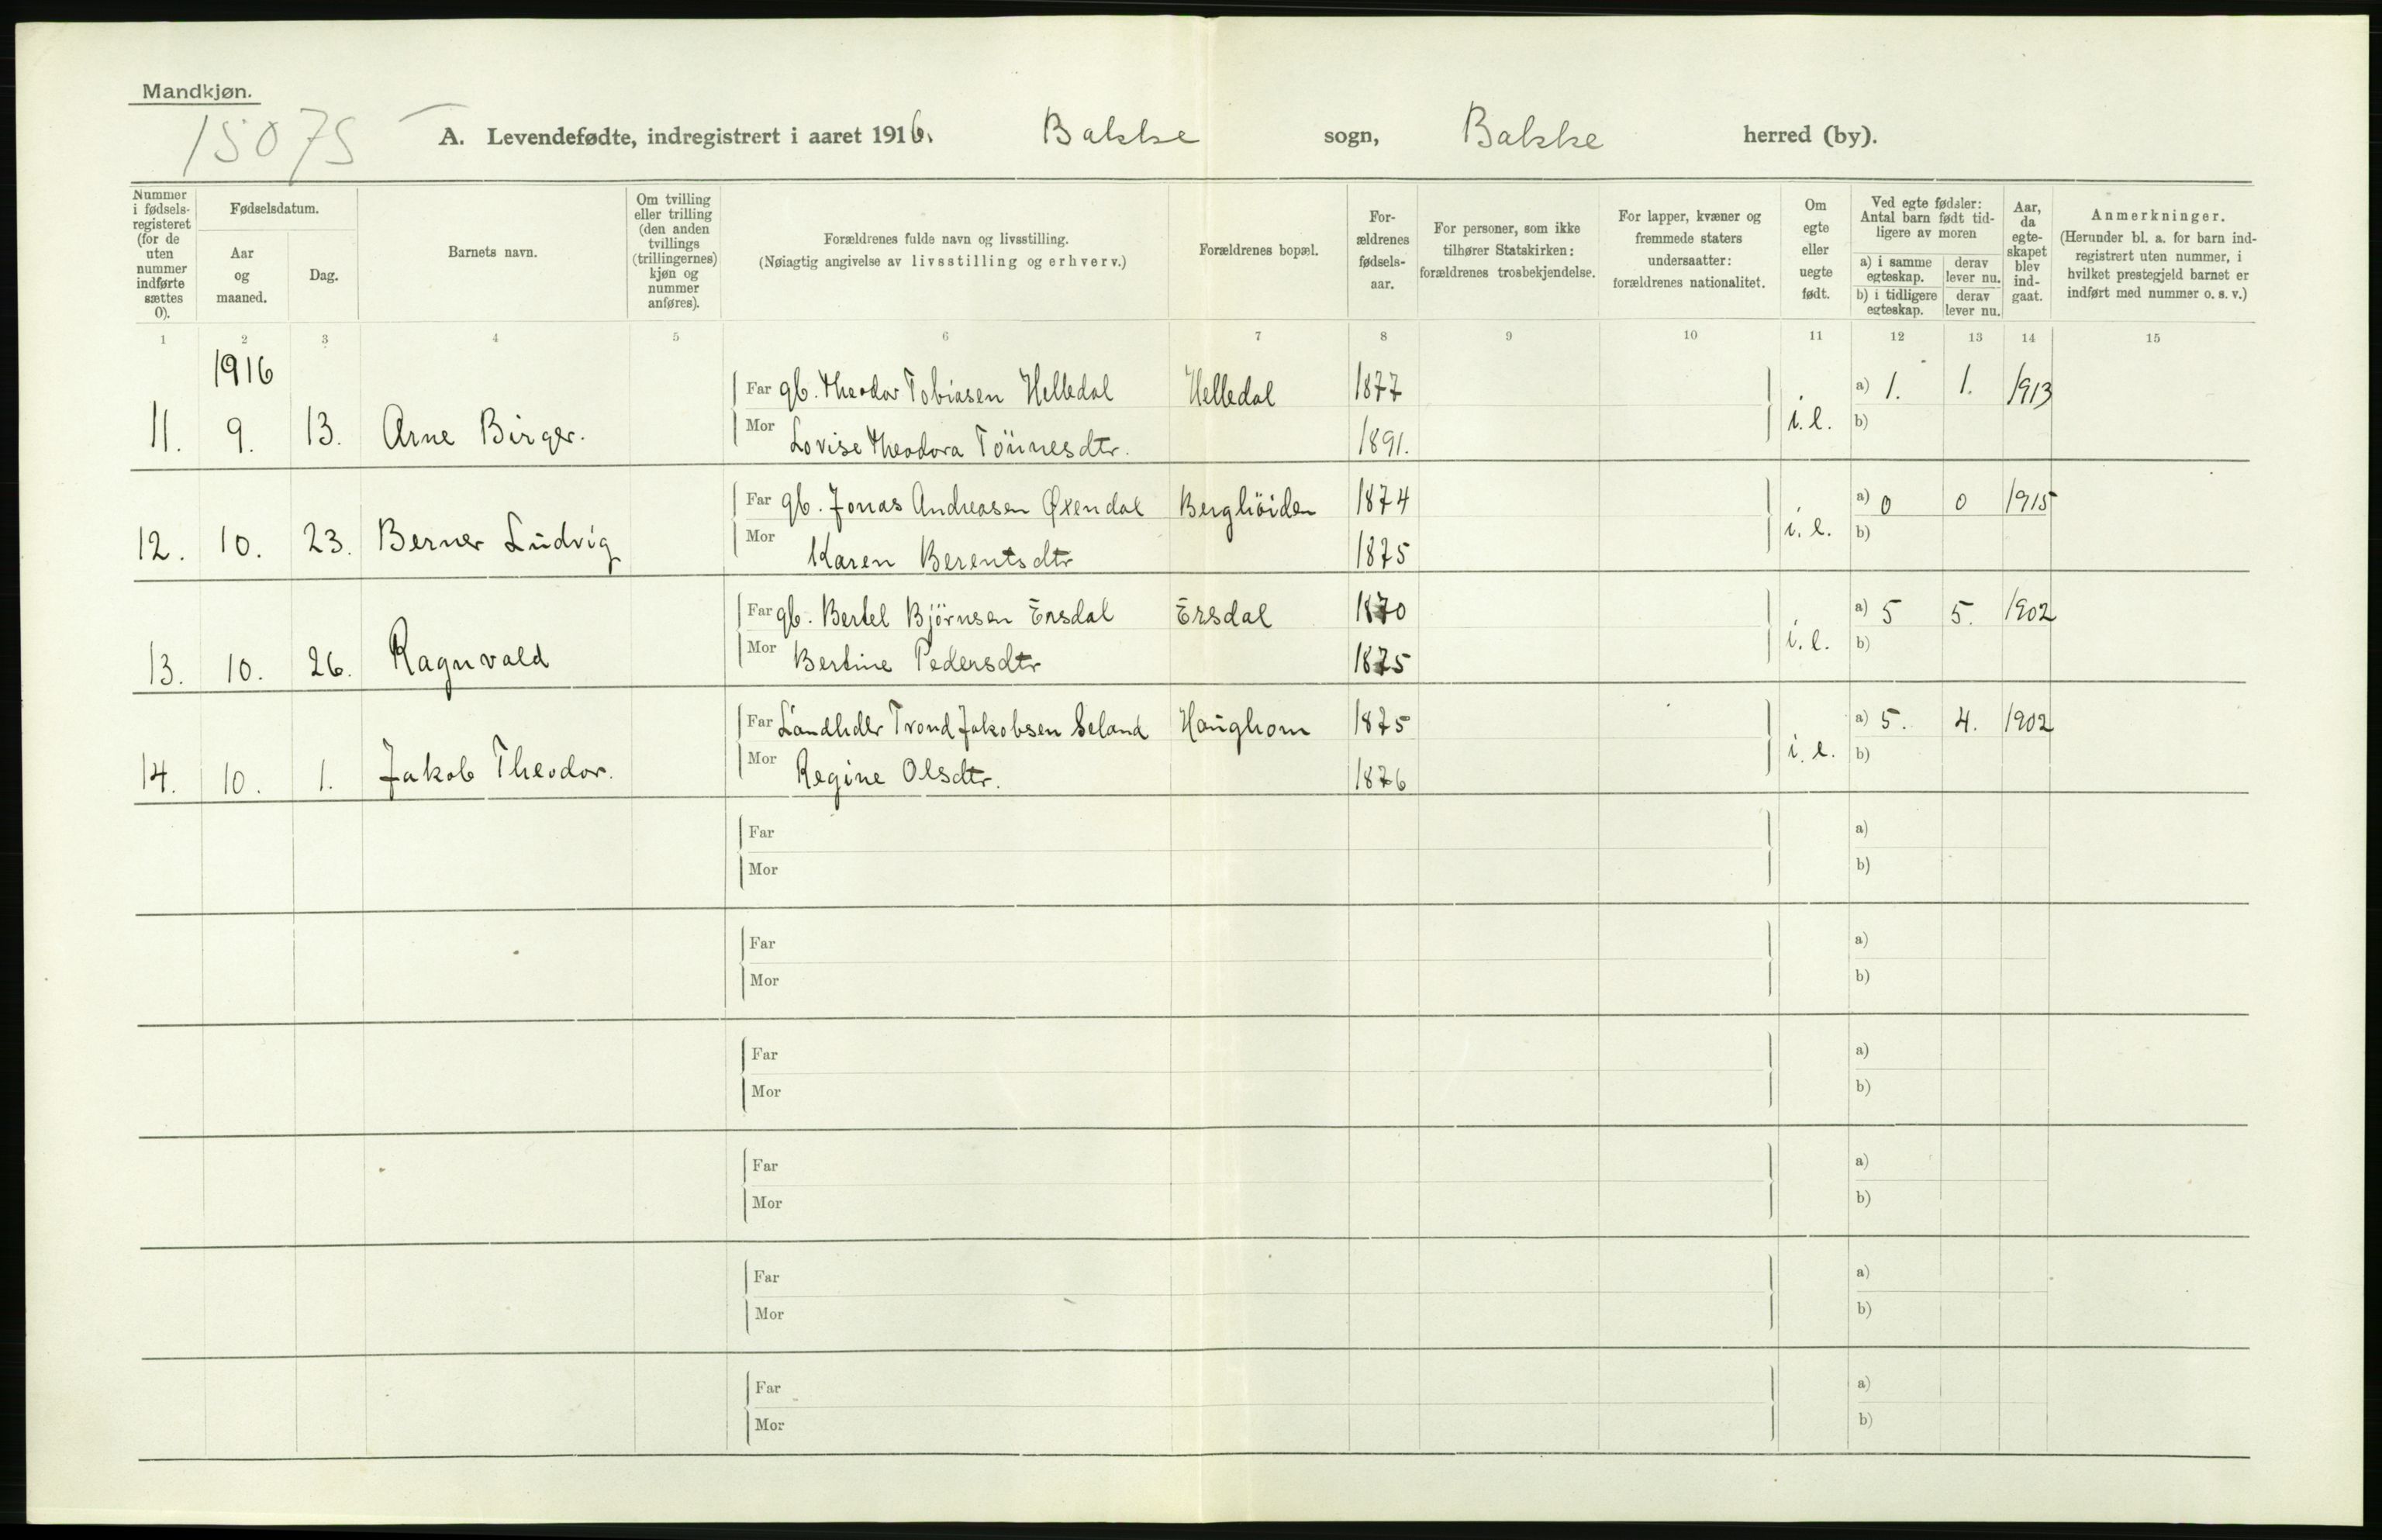 Mandkjøn.
15075
A. Levendefødte, indregistrert i aaret 1916. Bakke sogn, Bakke herred (by).
Nummer i fødsels-registeret (for de uten nummer indførte sættes 0).
Fødselsdatum.
Aar og maaned.
Dag.
Barnets navn.
Om tvilling eller trilling (den anden tvillings (trillingernes) kjøn og nummer anføres).
Forældrenes fulde navn og livsstilling.
(Nøiagtig angivelse av livsstilling og erhverv.)
Forældrenes bopæl.
For-ældrenes fødsels-aar.
For personer, som ikke tilhører Statskirken: forældrenes trosbekjendelse.
For lapper, kvæner og fremmede staters undersaatter: forældrenes nationalitet.
Om egte eller uegte født.
Ved egte fødsler: Antal barn født tid-ligere av moren
a) i samme egteskap.
derav lever nu.
b) i tidligere egteskap.
derav lever nu.
Aar, da egte-skapet blev ind-gaat.
Anmerkninger.
(Herunder bl. a. for barn ind-registrert uten nummer, i hvilket prestegjeld barnet er indført med nummer o. s. v.)
1 2 3 4 5 6 7 8 9 10 11 12 13 14 15
1916
Far gb. Theodor Tobiasen Helledal Helledal 1877 a) 1. 1. 1913
11. 9. 13. Arne Birger. Mor Lovise Theodora Tönnesdtr. 1891. i.e. b)
Far gb. Jonas Andreasen Øxendal Berghöiden 1874 a) 0 0 1915
12. 10. 23. Berner Ludvig Mor Karen Berentsdtr 1875 i.e. b)
Far gb. Bertel Björnsen Ersdal Ersdal 1870 a) 5 5. 1902
13. 10. 26. Ragnvald Mor Bertine Pedersdtr 1875 i.e. b)
Far Landhdlr Trond Jakobsen Seland Haughom 1875 a) 5. 4. 1902
14. 10. 1. Jakob Theodor. Mor Regine Olsdtr. 1876 i.e. b)
Far a)
Mor b)
Far a)
Mor b)
Far a)
Mor b)
Far a)
Mor b)
Far a)
Mor b)
Far a)
Mor b)